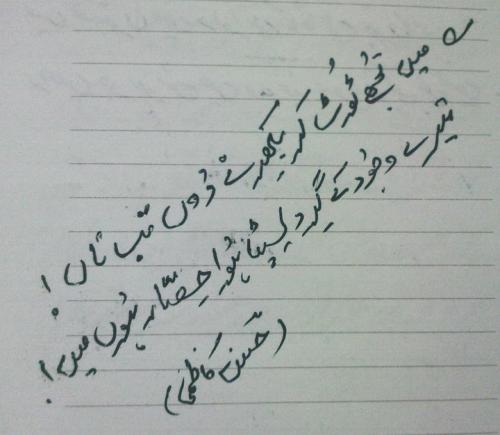 میں تجھے ٹوٹ کر بکھرنے دوں تب ناں !
تیرے وجود کے گرد لپٹا ہوا حصار ہوں میں !
(حسن کاظمی)